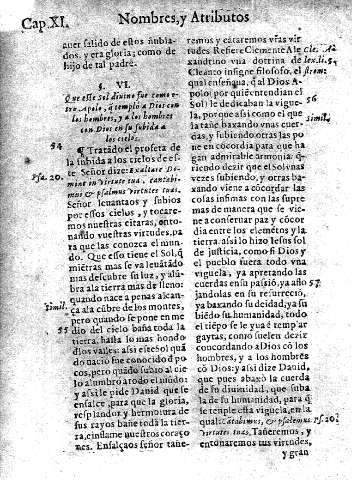 Cap. XI. Nombres, y Atributos
auer salido de estos ñublados
y era gloria; como de
hijo de tal padre.
§. VI.
Que este Sol diuino fue como otro
Apolo, q̃ templò a Dios con
los hombres, y a los hombres
con Dios en su subida a
los cielos.
54
¶ Tratãdo el profeta de
la subida a los cielos de este
Psa. 20.
Señor dize: Exaltare Domine
in virtute tua, cantabimus
& psalmus virtutes tuas.
Señor leuantaos y subios
por essos cielos, y tocaremos
nuestras citaras, entonando
vuestras virtudes, para
que las conozca el mundo.
Que esso tiene el Sol, q̃
miẽtras mas se va leuãtãdo
mas descubre su luz, y alũbra
ala tierra mas de lleno:
Simil.
quando nace a penas alcança
ala cũbre de los montes,
pero quando se pone en medio
55
del cielo baña toda la
tierra, hasta lo mas hondo
dlos valles: assi este Sol quãdo
naciò fue conocido d pocos,
pero quãdo subio al cielo
alumbrò a todo el mũdo:
y assi le pide Dauid que se
ensalce, para que la gloria,
resplandor y hermosura de
sus rayos bañe toda la tierra,
encistame nuestros coraçones.
Ensalçaos señor tañeremos
y cãtaremos vr̃as virtudes
Cle. Alexan.
lib. 1. strom.
Refiere Clemente Alexandrino
vna dotrina de
Cleanto insigne filosofo, el
qual enseñaua, q̃ al Dios Apolo
(por quiẽ entendian el
Sol) le dedicaban la viguela,
56
simil.
porque assi como el que
la tañe baxando vnas cuerdas,
y subiendo otras las pone
en cõcordia para que hagan
admirable armonia: queriendo
dezir que el Sol vnas
vezes subiendo, y otras baxando
viene a cõcordar las
cosas infimas con las supremas
de manera que se viene
a conseruar paz y cõcordia
entre los elemẽtos y la
tierra. assi lo hizo Iesus sol
de justicia, como si Dios y
el pueblo fuera todo vna
viguela, ya apretando las
cuerdas en su passiõ, ya aflo
57
jandolas en su resurrecciõ,
ya baxando su deidad, ya subiẽdo
su humanidad, todo
el tiẽpo se le yua ẽ tempar
gaytas, como suelen dezir
concordando a Dios cõ los
hombres, y a los hombres
cõ Dios: y assi dize Dauid,
que pues abaxò la cuerda
de su diuinidad, que suba
la de su humanidad, para q̃
se temple esta viguela, en la
Ps. 20.
qual: Cãtabimus, & psalmus
virtutes tuas. Tañeremos, y
entonaremos tus virtudes,
y gran